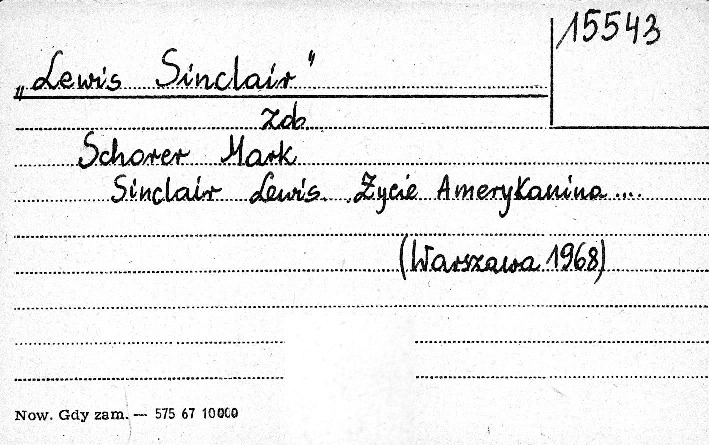 15543
„Lewis Sinclair"
zob.
Schorer Mark
Sinclair Lewis. Życie Amerykanina....
(Warszawa 1968)
Now. Gdy zam. — 575 67 10000